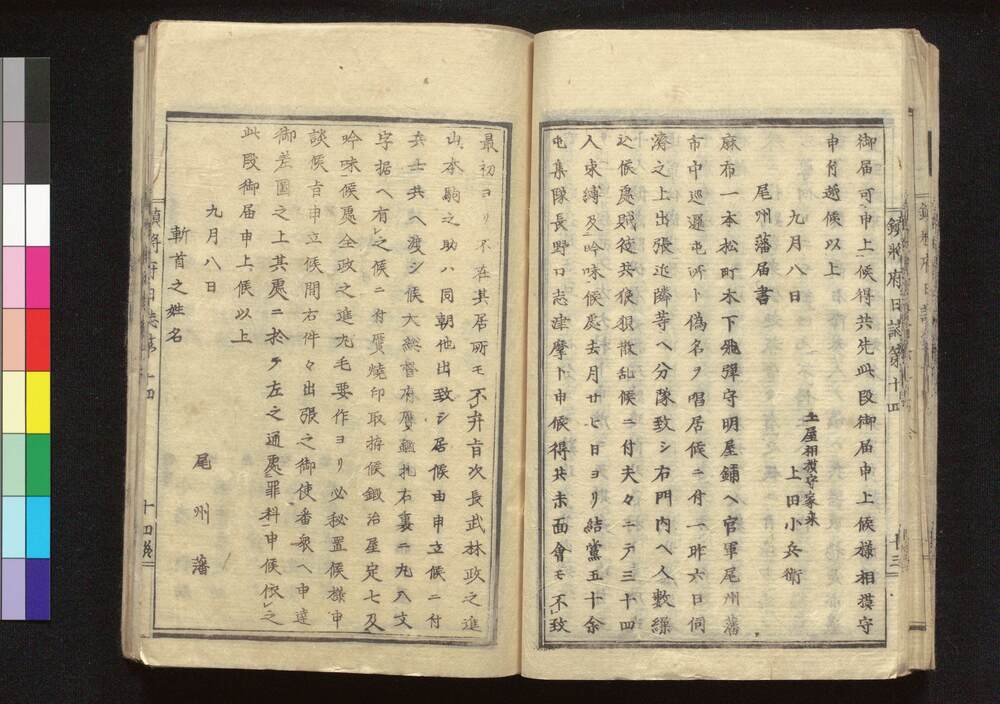 鎮将府日誌第十四
十三
御届可申上候得共先此段御届申上候様相摸守
申付越候以上
九月八日
土屋相摸守家来
上田小兵衛
尾州藩届書
麻布一本松町木下飛彈守明屋鋪ヘ官軍尾州藩
市中巡邏屯所ト偽名ヲ唱居候ニ付一昨六日伺
濟之上出張近隣等ヘ分隊致シ右門内ヘ人數繰
込候處賊徒共狼狽散乱候ニ付夫々ニテ三十四
人束縛及吟味候處去月廿七日ヨリ結黨五十余
屯集隊長野口志津摩ト申候得共未面會モ不致
最初ヨリ不在其居所モ不弁旨次長武林政之進
山本駒之助ハ同朝他出致シ居候由申立候ニ付
兵士共ヘ渡シ候大総督府贋鑑札右裏ニ九八文
字据ヘ有之候ニ付贋燒印取拵候鍛治屋定七及
吟味候處全政之進九毛要作ヨリ必秘置候様申
談候旨申立候間右件々出張之御使番衆ヘ申達
御差圖之上其處ニ於テ左之通處罪科申候依之
此段御届申上候以上
九月八日
尾州藩
斬首之姓名
鎮将府日誌第十四
十四